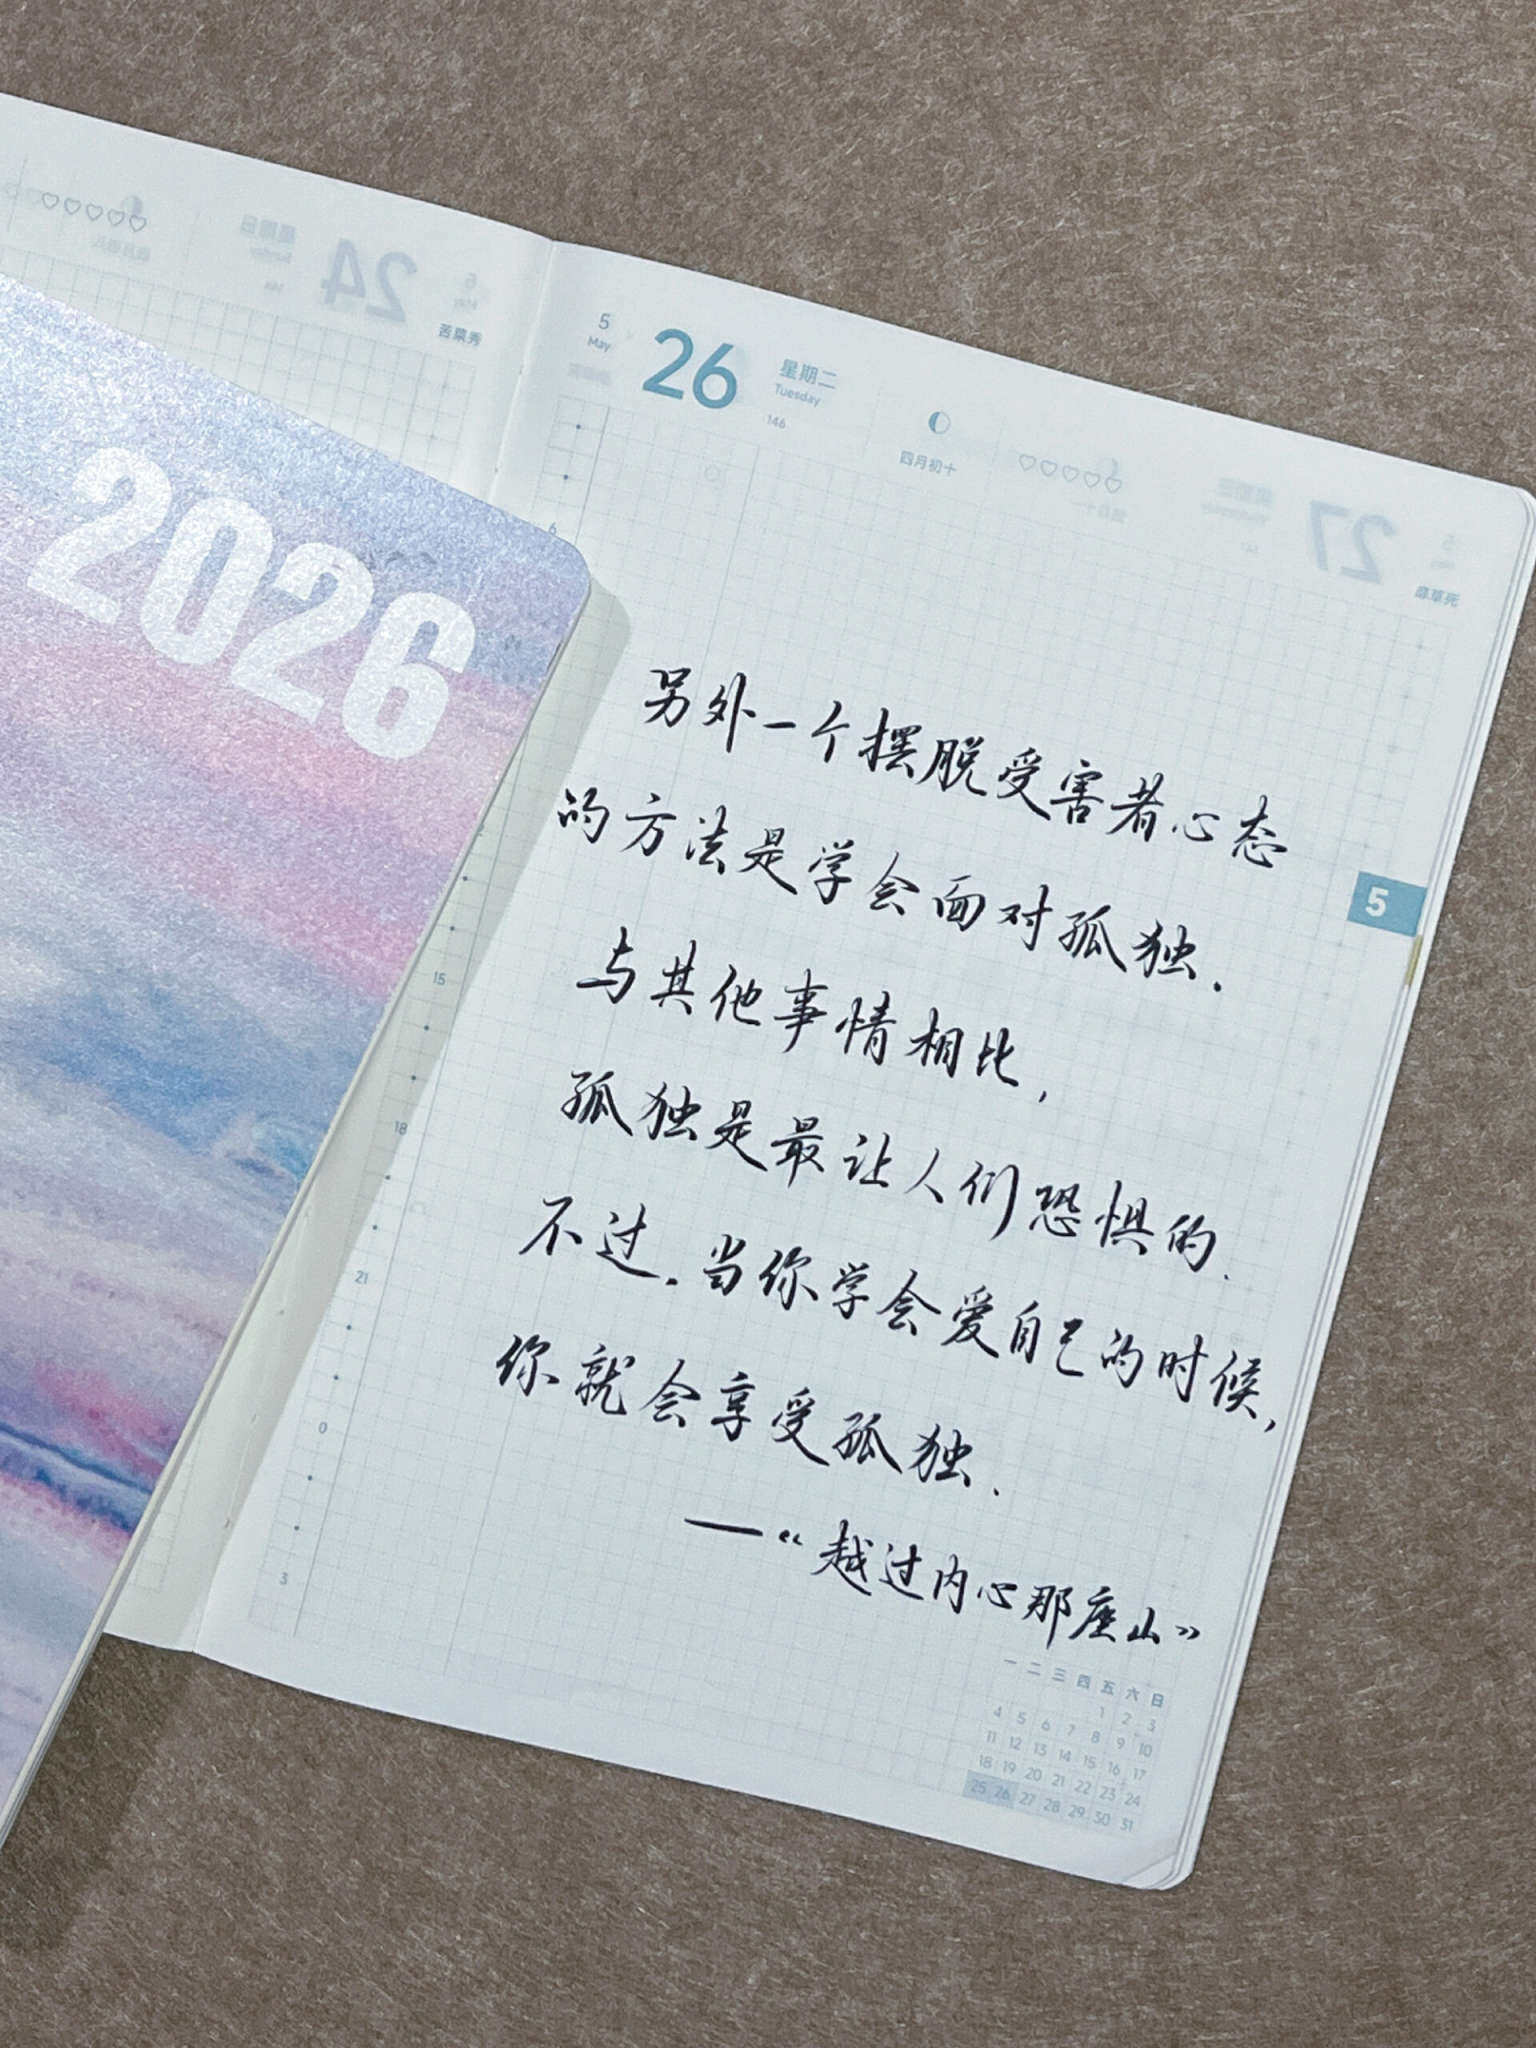 2026
苦菜秀
5
May
26
星期二
Tuesday
146
四月初十
靡草死
6
5
另外一个摆脱受害者心态
的方法是学会面对孤独.
与其他事情相比,
孤独是最让人们恐惧的.
不过.当你学会爱自己的时候,
你就会享受孤独.
—“越过内心那座山”
15
18
21
0
3
一 二 三 四 五 六 日
1 2 3
4 5 6 7 8 9 10
11 12 13 14 15 16 17
18 19 20 21 22 23 24
25 26 27 28 29 30 31